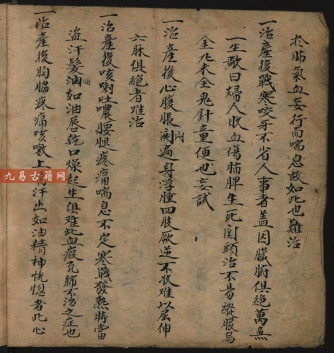 於肺氣血妄行而喘息故如此也難治
一治產後戰寒咬牙不省人事者盖因臟腑俱絕萬無
一生歌曰婦人敗血傷脾生死関頭治不易縱服烏
金化來金鬼針童便也妄試
一治產後心腹脹満遍身浮腫四肢厥逆不收难以屈伸
六脉俱絕者难治
一治產後咳嗽吐噥腰腿疼痛喘息不定寒戰發熱時當
盗汗髮油如油唇乾口燥起生俱难此血瘕充肺不治之症也
一治產後胸脇疼痛咳嗽上汗出如油精神恍惚者此心
九易古籍网